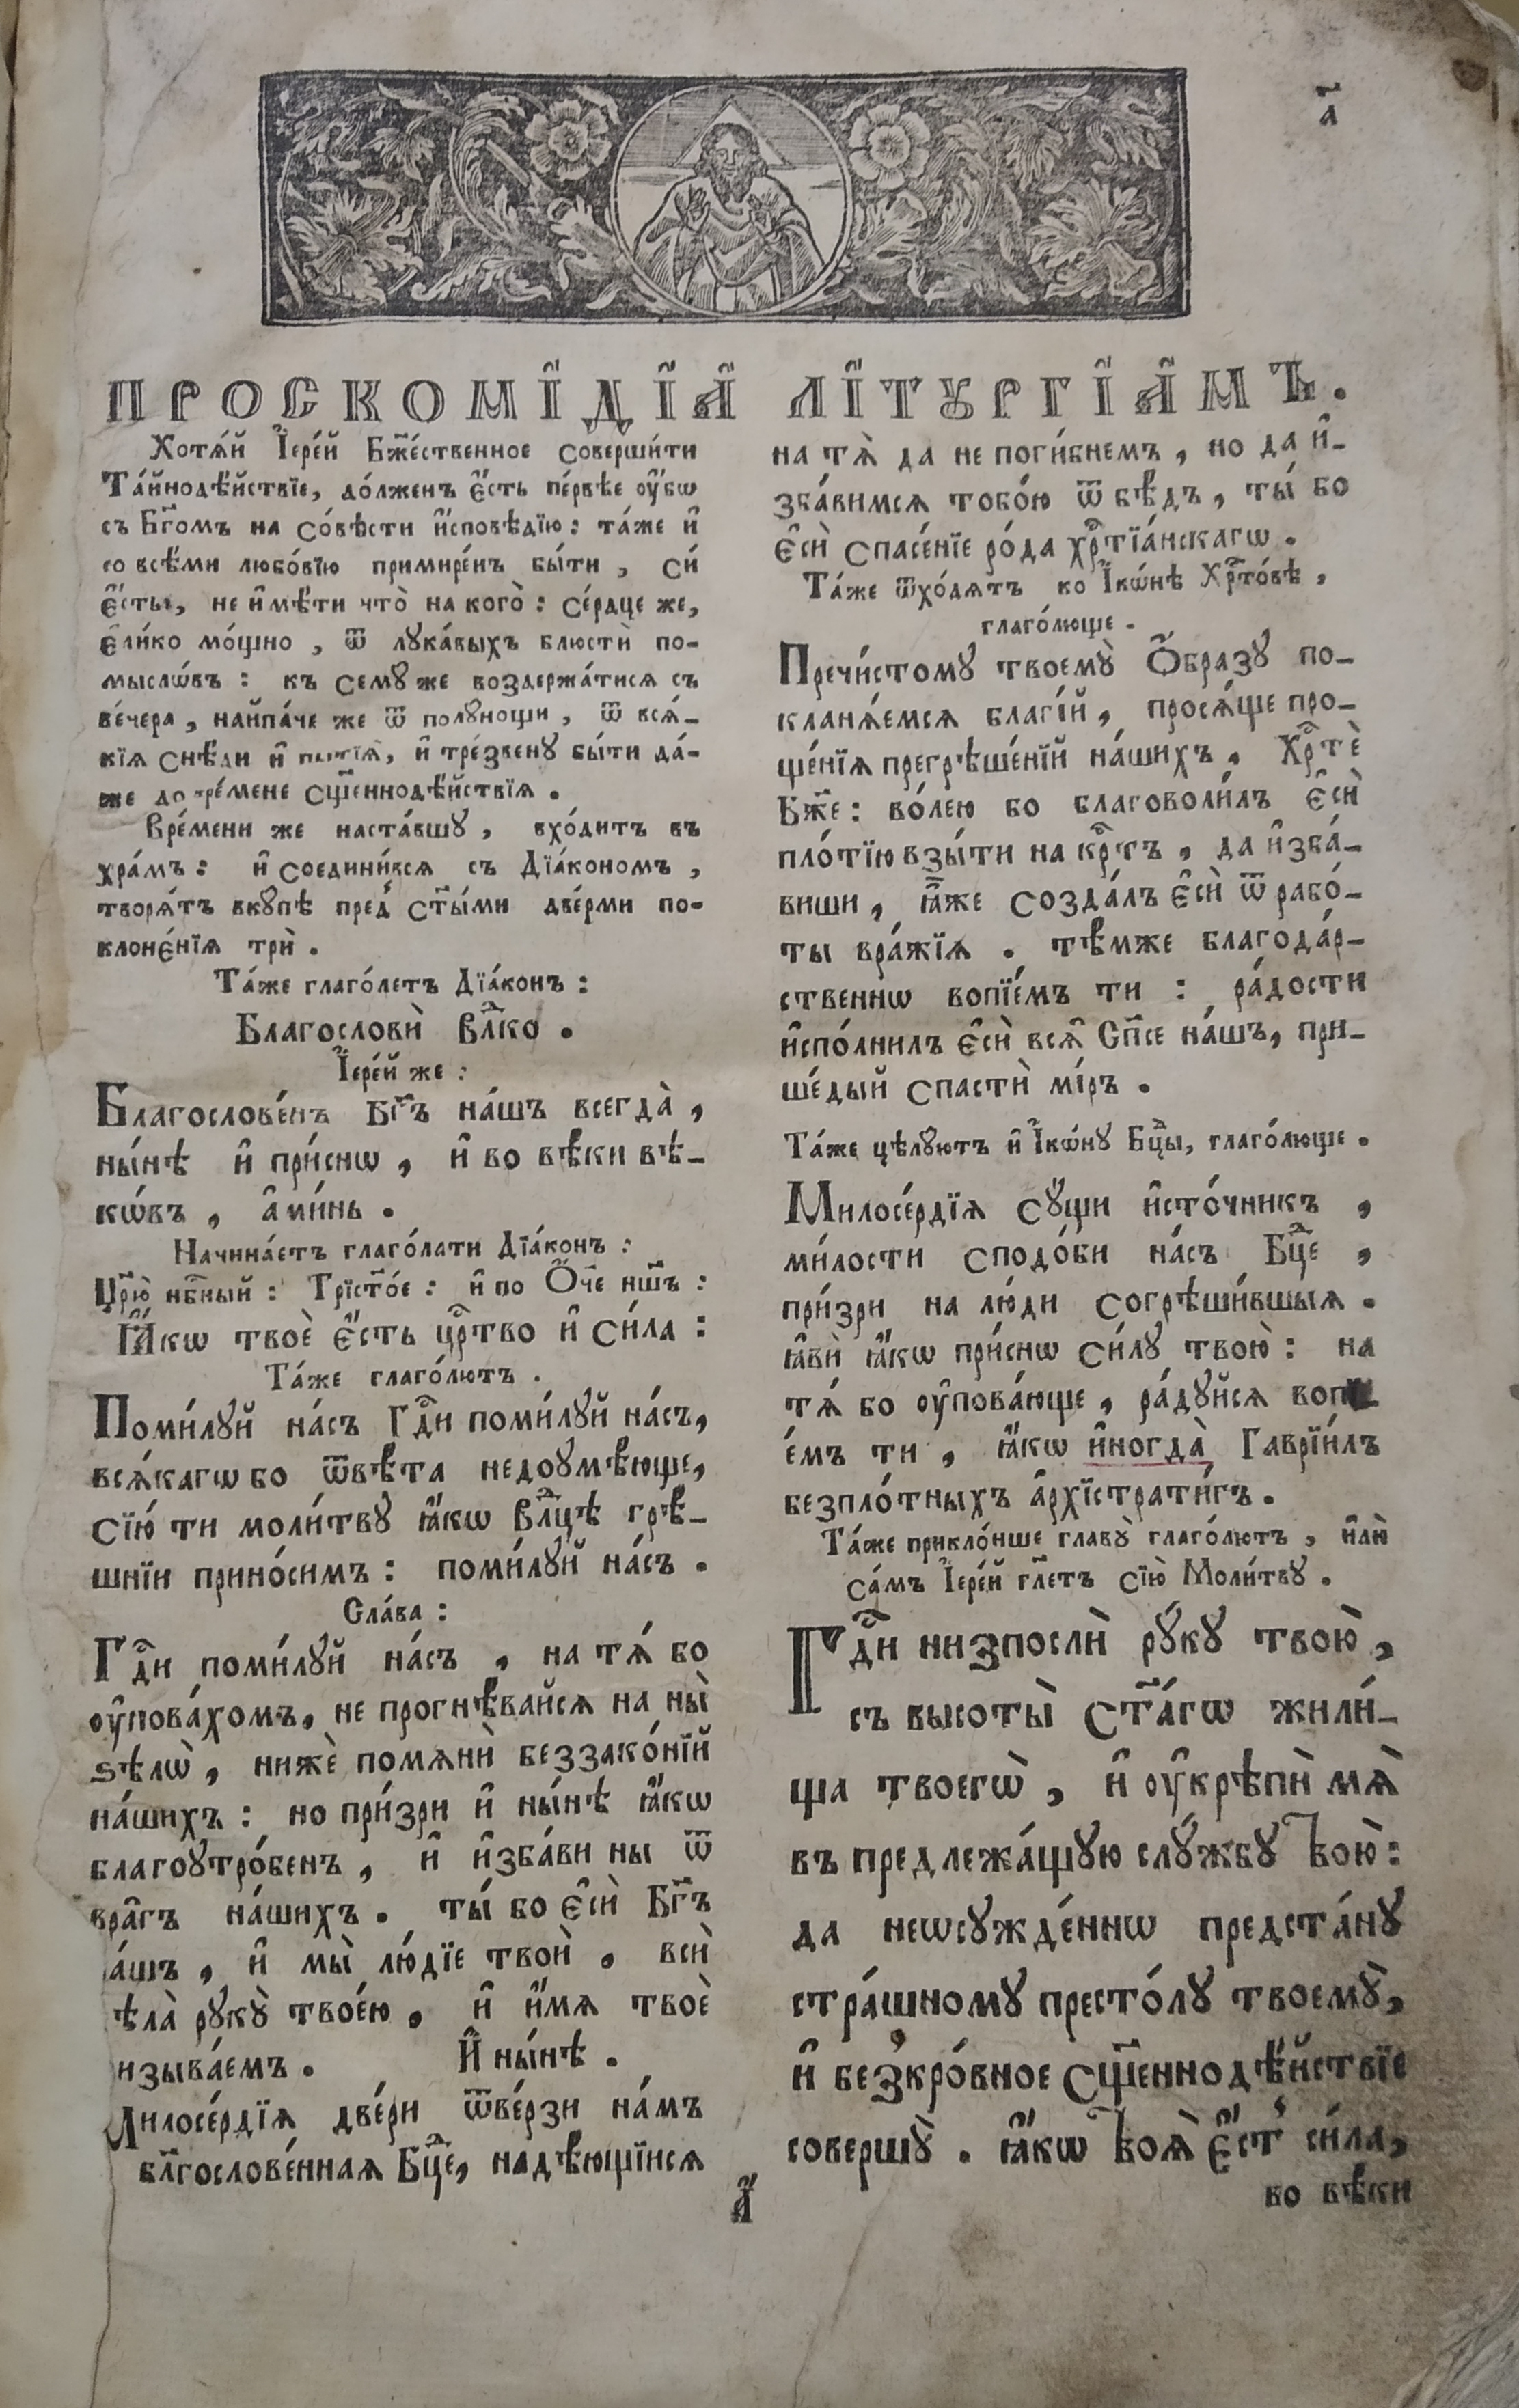 а҃
ПРОСКОМІ́ДІА ЛІТꙊРГІ́АМЪ.
Хотѧ́й І҆ере́й Бж҃е́ственное соверши́ти
Та́йнодѣ́йствїе, до́лженъ є҆́сть пе́рвѣе оу҆́бѡ
съ Бг҃омъ на со́вѣсти и҆́сповѣдїю: та́же и҆
со всѣ́ми любо́вїю примире́нъ бы́ти, си́
є҆́сть, не и҆мѣ́ти что̀ на кого̀: се́рдце же,
є҆ли́ко мо́щно, ѿ лꙋка́выхъ блюстѝ по-
мыслѡ́въ: къ семꙋ́ же воздержа́тисѧ съ
ве́чера, найпа́че же ѿ полꙋнощи, ѿ всѧ́-
кїѧ снѣ́ди и҆ питїѧ̀, и҆ тре́звенꙋ бы́ти да́-
же до вре́мене сщ҃еннодѣ́йствїѧ.
Вре́мени же наста́вшꙋ, вхо́дитъ въ
хра́мъ: и҆ соедини́всѧ съ Дїа́кономъ,
творѧ́тъ вкꙋпѣ пред̾ ст҃ы́ми две́рми по-
клоне́нїѧ трѝ.
Та́же глаго́летъ Дїа́конъ:
Благословѝ влⷣко.
І҆ере́й же:
Благослове́нъ Бг҃ъ на́шъ всегда̀,
ны́нѣ и҆ при́снѡ, и҆ во вѣ́ки вѣ-
кѡ́въ, а҆ми́нь.
Начина́етъ глаго́лати Дїа́конъ:
Цр҃ю̀ нбⷭ҇ный: Трїст҃о́е: и҆ по Ѻ҆́ч҃е нш҃ъ:
Ꙗ҆́кѡ твоѐ є҆́сть црⷭ҇тво и҆ си́ла:
Та́же глаго́лютъ.
Поми́лꙋй на́съ Гдⷭ҇и поми́лꙋй на́съ,
всѧ́кагѡ бо ѿвѣ́та недоꙋмѣ́юще,
сїю́ ти моли́твꙋ ꙗ҆́кѡ влⷣцѣ грѣ́-
шнїи прино́симъ: поми́лꙋй на́съ.
Сла́ва:
Гдⷭ҇и поми́лꙋй на́съ, на тѧ́ бо
оу҆пова́хомъ, не прогнѣ́вайсѧ на ны̀
ѕѣлѡ̀, нижѐ помѧнѝ беззако́нїй
на́шихъ: но при́зри и҆ ны́нѣ ꙗ҆́кѡ
благоꙋтро́бенъ, и҆ и҆зба́ви ны ѿ
вра̑гъ на́шихъ. ты́ бо є҆сѝ Бг҃ъ
а́шъ, и҆ мы̀ лю́дїе твоѝ. всѝ
ѣла̀ рꙋкꙋ̀ твое́ю, и҆ и҆́мѧ твоѐ
изыва́емъ. И҆ ны́нѣ.
Милосе́рдїѧ две́ри ѿве́рзи на́мъ
бл҃гослове́ннаѧ Бцⷣе, надѣ́ющїисѧ
на тѧ̀ да не поги́бнемъ, но да и҆-
зба́вимсѧ тобо́ю ѿ бѣ́дъ, ты́ бо
є҆сѝ спасе́нїе ро́да хрⷭ҇тїа́нскагѡ.
Та́же ѿхо́дѧтъ ко І҆кѡ́нѣ Хрⷭ҇то́вѣ,
глаго́люще.
Пречи́стомꙋ твоемꙋ̀ Ѻ҆́бразꙋ по-
кланѧ́емсѧ благі́й, просѧ́ще про-
ще́нїѧ прегрѣше́нїй на́шихъ, Хрⷭ҇тѐ
Бж҃е: во́лею бо благоволи́лъ є҆сѝ
пло́тїю взы́ти на крⷭ҇тъ, да и҆зба́-
виши, ꙗ҆̀же созда́лъ є҆сѝ ѿ рабо́-
ты вра́жїѧ. тѣ́мже благода́р-
ственнѡ вопїе́мъ ти: ра́дости
и҆спо́лнилъ є҆сѝ всѧ̑ Сп҃се на́шъ, при-
ше́дый спастѝ мі́ръ.
Та́же цѣлꙋ́ютъ и҆ І҆кѡ́нꙋ Бцⷣы, глаго́люще.
Милосе́рдїѧ сꙋ́щи и҆сто́чникъ,
ми́лости сподо́би на́съ Бцⷣе,
при́зри на лю́ди согрѣши́вшыѧ.
ꙗ҆вѝ ꙗ҆́кѡ при́снѡ си́лꙋ твою̀: на
тѧ́ бо оу҆пова́юще, ра́дꙋйсѧ вопї-
е́мъ ти, ꙗ҆́кѡ и҆ногда̀ Гаврїи́лъ
безпло́тныхъ а҆рхїстрати́гъ.
Та́же прикло́нше главꙋ̀ глаго́лютъ, и҆лѝ
са́мъ І҆ере́й гл҃етъ сїю̀ Моли́твꙋ.
Гдⷭ҇и низпослѝ рꙋ́кꙋ твою̀,
съ высоты̀ ст҃а́гѡ жили́-
ща твоегѡ̀, и҆ оу҆крѣпѝ мѧ̀
въ предлежа́щꙋю слꙋ́жбꙋ твою̀:
да неѡсꙋжде́ннѡ предста́нꙋ
стра́шномꙋ престо́лꙋ твоемꙋ̀,
и҆ без̾кро́вное сщ҃еннодѣ́йствїе
совершꙋ̀. ꙗ҆́кѡ твоѧ̀ є҆́ст̾ си́ла,
а҃
во вѣ́ки